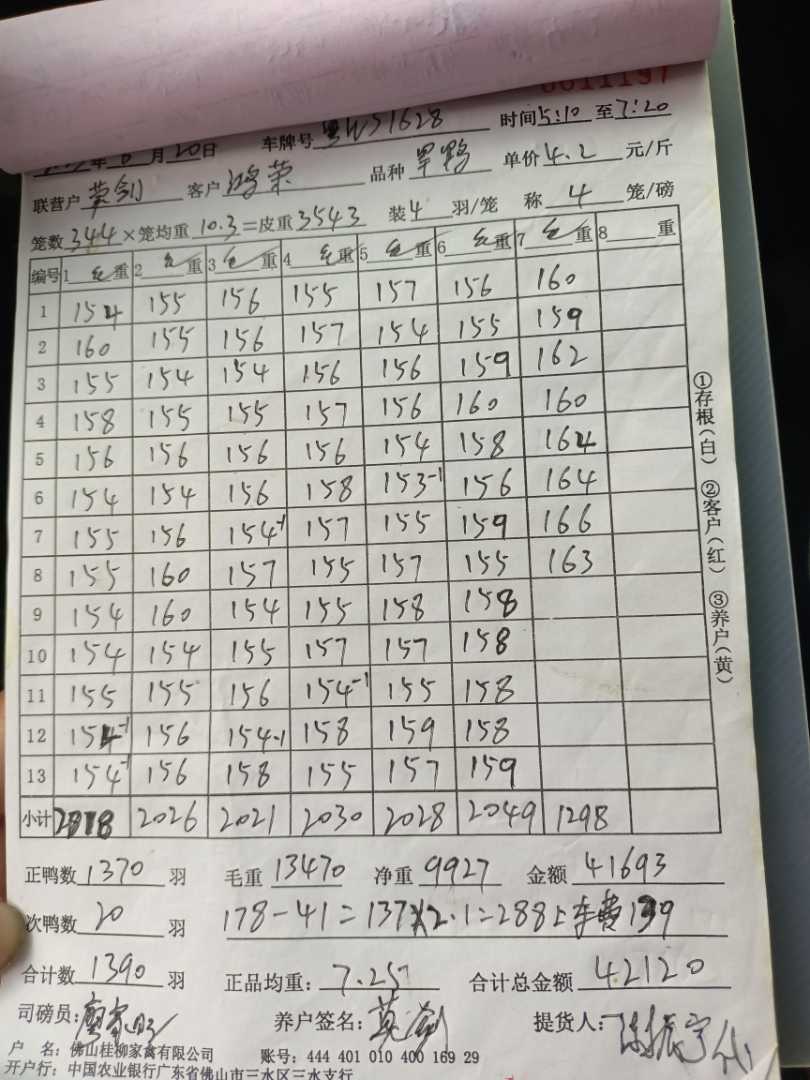 0611197
年6月20日 车牌号粤W51628 时间5:10至7:20
联营户 莫剑 客户 鸿荣 品种 旱鸭 单价4.2元/斤
笼数344×笼均重10.3=皮重3543 装4羽/笼 称4笼/磅
编号 1毛重 2毛重 3毛重 4毛重 5毛重 6毛重 7毛重 8重
1 154 155 156 155 157 156 160
2 160 155 156 157 154 155 159
3 155 154 154 156 156 159 162
4 158 155 155 157 156 160 160
5 156 156 156 156 154 158 164
6 154 154 156 158 153-1 156 164
7 155 156 154-1 157 155 159 166
8 155 160 157 155 157 155 163
9 154 160 154 155 158 158
10 154 154 155 157 157 158
11 155 155 156 154-1 155 158
12 154-1 156 154-1 158 159 158
13 154-1 156 158 155 157 159
小计 2018 2026 2021 2030 2028 2049 1298
正鸭数1370羽 毛重13470 净重9927 金额41693
次鸭数20羽 178-41=137×2.1=288上车费139
合计数1390羽 正品均重:7.25 合计总金额42120
司磅员: 养户签名:莫剑 提货人:陈振宇代
户 名:佛山桂柳家禽有限公司 账号:444 401 010 400 169 29
开户行:中国农业银行广东省佛山市三水区三水支行
①存根(白) ②客户(红) ③养户(黄)